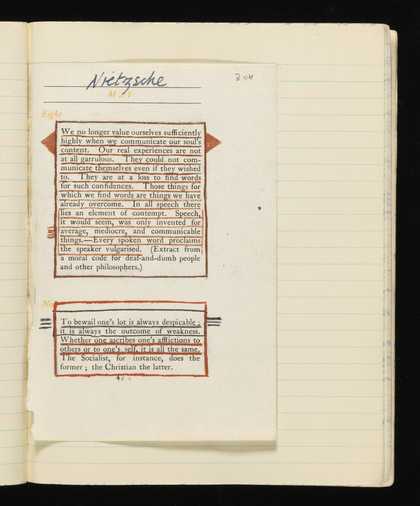 Nietzsche
304
Eight
We no longer value ourselves sufficiently
highly when we communicate our soul's
content. Our real experiences are not
at all garrulous. They could not com-
municate themselves even if they wished
to. They are at a loss to find words
for such confidences. Those things for
which we find words are things we have
already overcome. In all speech there
lies an element of contempt. Speech,
it would seem, was only invented for
average, mediocre, and communicable
things.—Every spoken word proclaims
the speaker vulgarised. (Extract from
a moral code for deaf-and-dumb people
and other philosophers.)
To bewail one's lot is always despicable;
it is always the outcome of weakness.
Whether one ascribes one's afflictions to
others or to one's self, it is all the same.
The Socialist, for instance, does the
former; the Christian the latter.